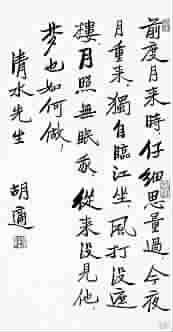 前度月来時,仔细思量過,今夜
月重来,獨自臨江坐。風打没遮
樓,月照無眠我。從来没見他,
梦也如何做!
清水先生
胡適